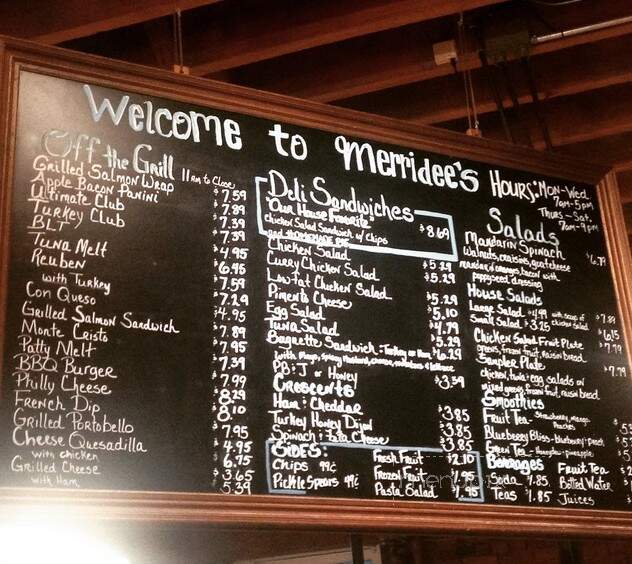 Welcome to Merridee's
Hours: Mon-Wed
7am-5pm
Thurs-Sat.
7am-9pm
Off the Grill 11am to Close
Grilled Salmon Wrap $7.59
Apple Bacon Panini 7.89
Ultimate Club $7.39
Turkey Club 7.39
BLT $4.95
Tuna Melt $6.45
Reuben 7.59
with Turkey 7.29
Con Queso $4.95
Grilled Salmon Sandwich 7.89
Monte Cristo 7.95
Patty Melt 7.39
BBQ Burger 7.99
Philly Cheese 8.29
French Dip 8.10
Grilled Portobello 7.95
Cheese Quesadilla 4.95
with chicken 6.75
Grilled Cheese 3.65
with Ham 5.39
Deli Sandwiches
Our House Favorite
Chicken Salad Sandwich w/ Chips $8.69
and HOMEMADE PIE
Chicken Salad $5.29
Curry Chicken Salad $5.29
Lowfat Chicken Salad
Pimento Cheese $5.29
Egg Salad 5.10
Tuna Salad $4.79
Baguette Sandwich: Turkey or Ham $6.29
with Mayo, Spicy Mustard, cheese, tomatoes & lettuce
PB: J or Honey $3.59
Crescents
Ham & Cheddar $3.85
Turkey Honey Dijon $3.85
Spinach & Feta Cheese $3.85
Sides:
Chips 99¢
Pickle Spears 49¢
Fresh Fruit $2.10
Frozen Fruit $1.95
Pasta Salad $1.95
Salads
Mandarin Spinach $6.79
Walnuts, craisins, goat cheese
mandarin oranges, bacon with
poppyseed dressing
House Salads
Large Salad $4.99 with scoop of $7.89
Small Salad $3.25 chicken salad $6.15
Chicken Salad Fruit Plate $7.79
greens, frozen fruit, raisin bread
Sampler Plate $7.79
chicken, tuna & egg salads on
mixed greens, frozen fruit, raisin bread
Smoothies
Fruit Tea - Strawberry, mango,
Peaches
Blueberry Bliss - blueberry, peach
Green Tea - honeydew, pineapple
Beverages Fruit Tea
Soda 1.85 Bottled Water
Teas $1.85 Juices